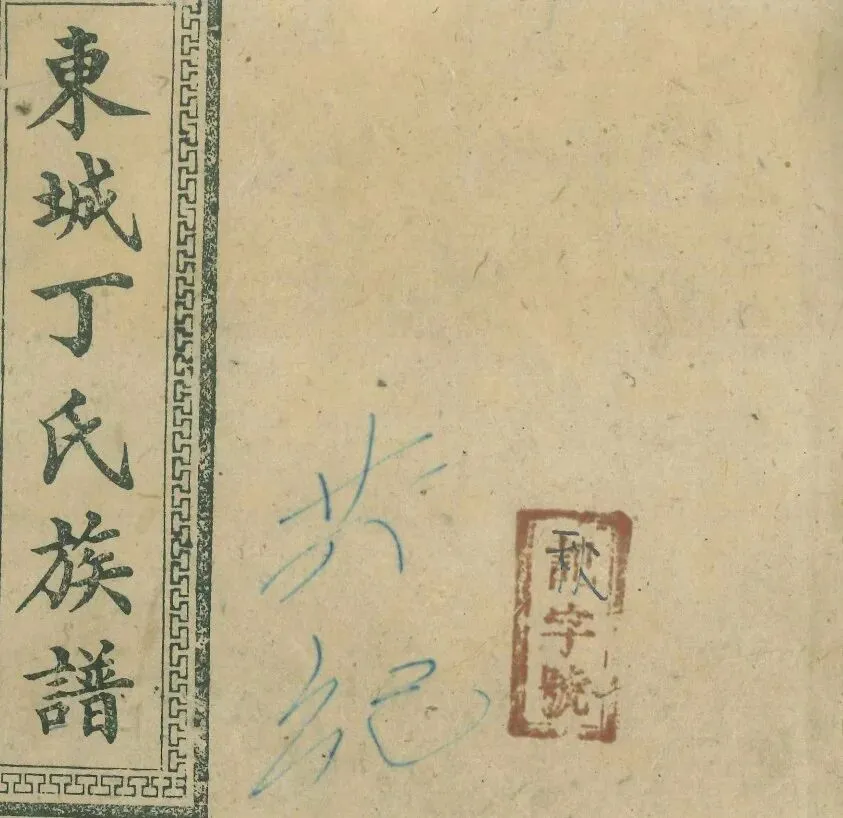 東城丁氏族譜
秋
字號